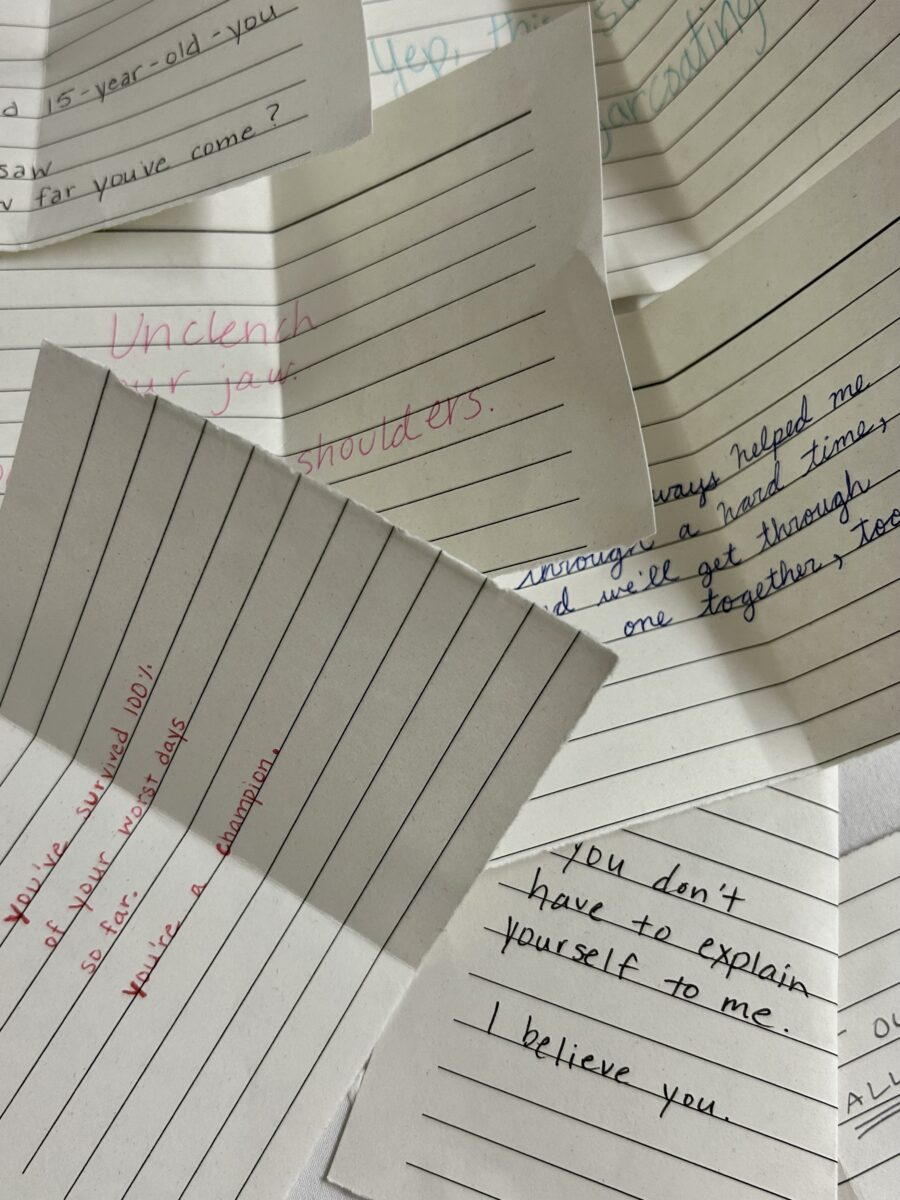 15-year-old-you
saw
far youv'e come?
Yep, this
Unclench
jaw.
shoulders.
helped me
through a hard time,
we'll get through
one together, too
You've survived 100%
of your worst days
so far.
You're a champion.
you don't
have to explain
yourself to me.
I believe you.
ALL